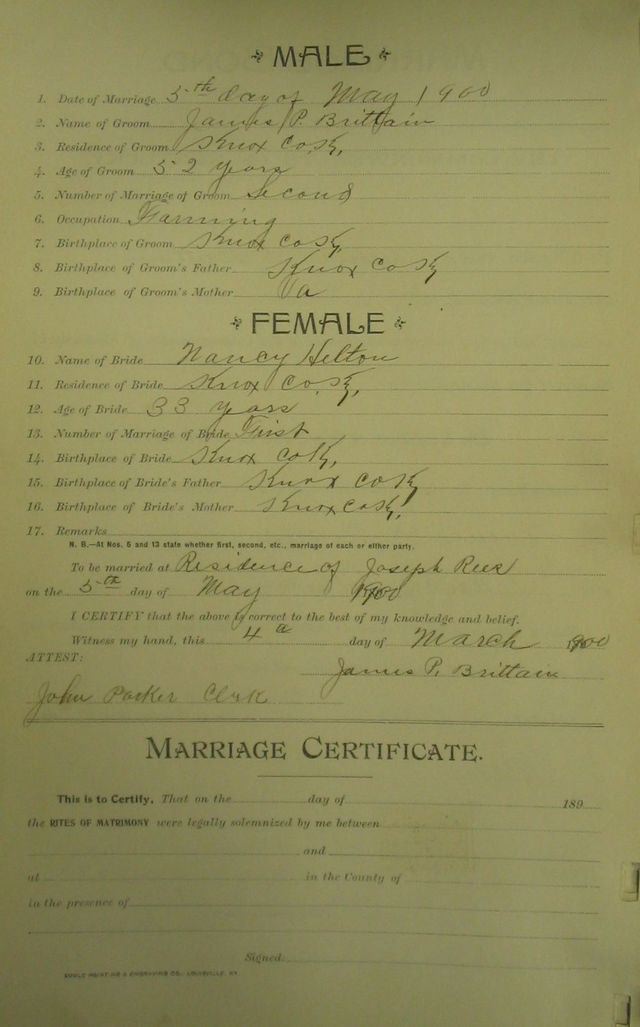 MALE
1. Date of Marriage 5th day of May 1900
2. Name of Groom James P. Brittain
3. Residence of Groom Knox Co Ky,
4. Age of Groom 52 years
5. Number of Marriage of Groom Second
6. Occupation Farming
7. Birthplace of Groom Knox Co Ky
8. Birthplace of Groom's Father Knox Co Ky
9. Birthplace of Groom's Mother Va
FEMALE
10. Name of Bride Nancy Helton
11. Residence of Bride Knox Co. Ky,
12. Age of Bride 33 years
13. Number of Marriage of Bride First
14. Birthplace of Bride Knox Co Ky,
15. Birthplace of Bride's Father Knox Co Ky
16. Birthplace of Bride's Mother Knox Co Ky,
17. Remarks
N. B.—At Nos. 5 and 13 state whether first, second, etc., marriage of each or either party.
To be married at Residence of Joseph
on the 5th day of May 1900
I CERTIFY that the above is correct to the best of my knowledge and belief.
Witness my hand, this 4 day of March 1900
ATTEST:
James P. Brittain
John Parker Clerk
MARRIAGE CERTIFICATE.
This is to Certify, That on the day of 189
the RITES OF MATRIMONY were legally solemnized by me between
and
at in the County of
in the presence of
Signed
PRINTING & ENGRAVING CO., LOUISVILLE, KY.